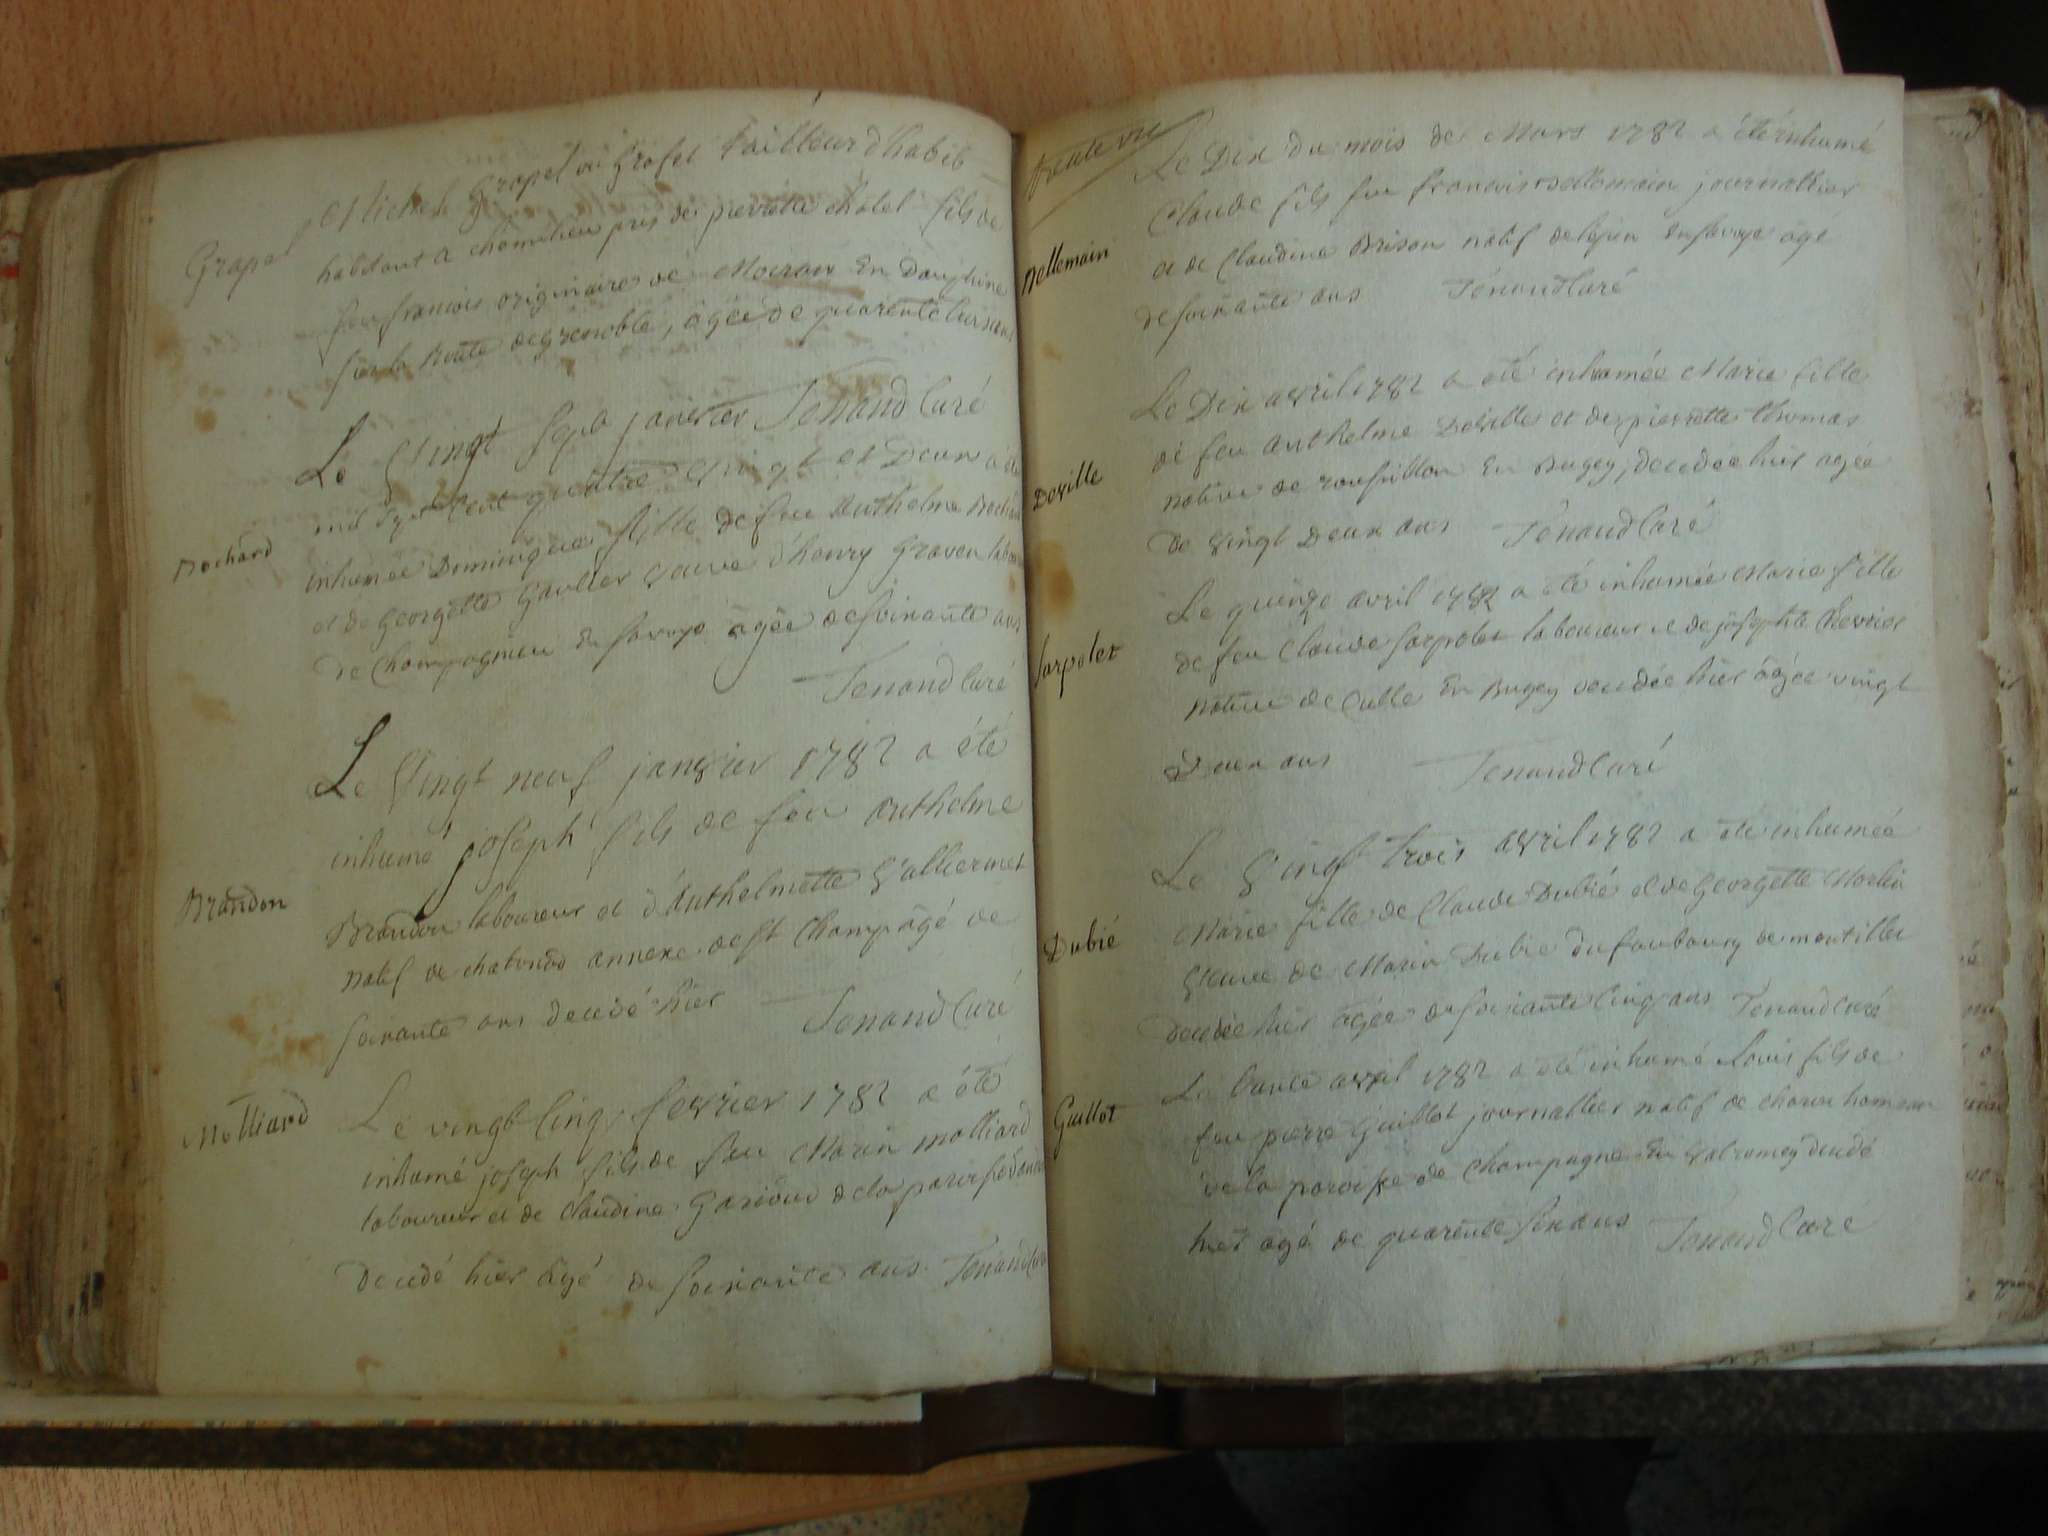 Michel Grapel ou Grafel tailleur d'habit
Grapel
habitant a chomilieu pres de pierre chatel fils de
feu francois originaire de Moiran En Dauphine
sur la Route de grenoble, agée de quarente
Tenand Curé
Le Vingt Sept janvier
mil Sept Cent quattre Vingt et Deux a été
Bochard
inhumée Dominique fille de feu Anthelme Bochard
et de Georgette Gaullier veuve d'henry Graven
de Champagnieu En Savoye âgée de soixante ans
Tenand Curé
Le Vingt neuf janvier 1782 a été
inhumé joseph fils de feu Anthelme
Brandon
Brandon laboureur et d'Anthelmette Vallermet
natif de chavonod annexe de st Champ âgé de
soixante ans decedé hier
Tenand Curé
Molliard
Le vingt Cinq fevrier 1782 a été
inhumé joseph fils de feu Marin molliard
laboureur et de Claudine de la
Decedé hier âgé de soixante ans. Tenand Curé
Le Dix du mois de Mars 1782 a été inhumé
Claude fils feu francois Bellemain journallier
Bellemain
et de Claudine Brison natif de lepin En savoye agé
de soixante ans Tenand Curé
Le Dix avril 1782 a été inhumée Marie fille
de feu Anthelme Deville et de pierrette thomas
Deville
native de roussillon En Bugey, decedee hier agée
De vingt Deux ans Tenand Curé
Le quinze avril 1782 a été inhumée Marie fille
de feu Claude Sarpolet laboureur et de josephte Chevrier
Sarpolet
native de Culle En Bugey decedée hier âgée vingt
Deux ans Tenand Curé
Le Vingt trois avril 1782 a été inhumée
Marie fille de Claude Dubié et de Georgette Morlin
Dubié
Veuve de Marin Dubie du faubourg de
decedée hier âgée de soixante Cinq ans Tenand Curé
Le trente avril 1782 a été inhumé Louis fils de
Guillot
feu pierre Guillot journallier natif de
de la paroisse de Champagne En valromey decedé
hier agé de quarente six ans Tenand Curé